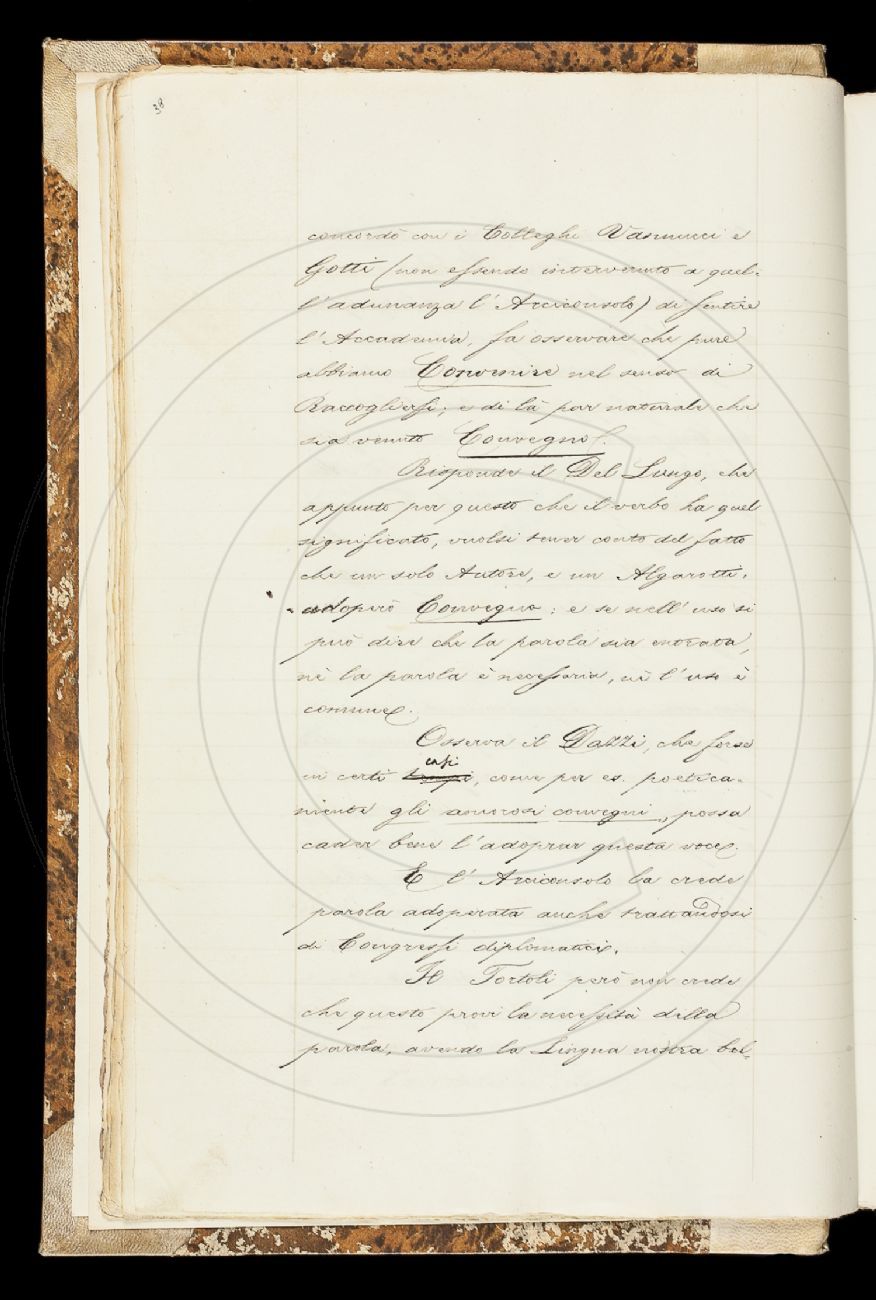 38
concordò con i Colleghi Vannucci e
Gotti (non essendo intervenuto a quel-
l'adunanza l'Arciconsolo) di sentire
l'Accademia, fa osservare che pure
abbiamo Convenire nel senso di
Raccogliersi; e di là par naturale che
sia venuto Convegno.
Risponde il Del Lungo, che
appunto per questo che il verbo ha quel
significato, vuolsi tener conto del fatto
che un solo Autore, e un Algarotti,
adoperò Convegno: e se nell'uso si
può dire che la parola sia entrata,
nè la parola è necessaria, nè l'uso è
comune.
Osserva il Dazzi, che forse
casi
in certi tempi, come per es. poetica-
mente gli amorosi convegni, possa
cader bene l'adoprar questa voce.
E l'Arciconsolo la crede
parola adoperata anche trattandosi
di Congressi diplomatici.
Il Tortoli però non crede
che questo provi la necessità della
parola, avendo la Lingua nostra bel-